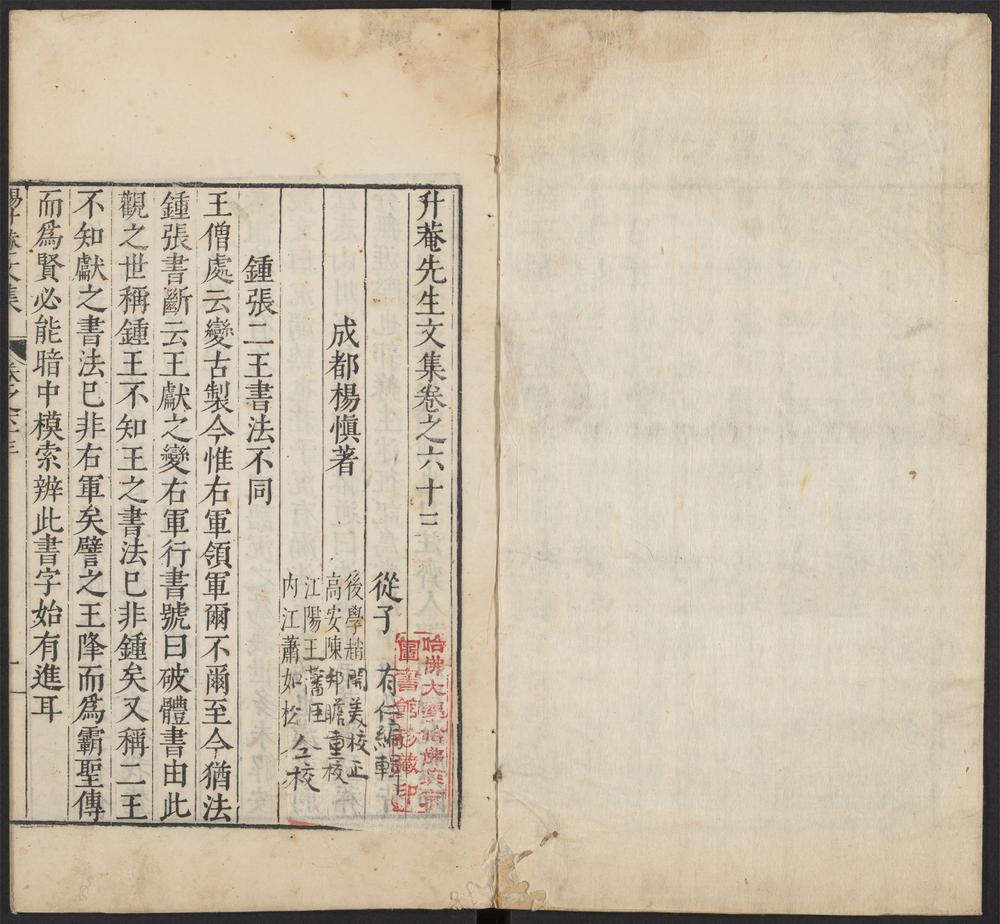 升菴先生文集卷之六十三
從子 有仁編輯
成都楊慎著
後學趙開美校正
高安陳邦瞻重校
江陽王藩臣
內江蕭如松 仝校
鍾張二王書法不同
王僧處云變古製今惟右軍領軍爾不爾至今猶法
鍾張書斷云王獻之變右軍行書號曰破體書由此
觀之世稱鍾王不知王之書法已非鍾矣又稱二王
不知獻之書法已非右軍矣譬之王降而為霸聖傳
而為賢必能暗中模索辨此書字始有進耳
楊升菴文集
卷之六十三
一
哈佛大學哈佛燕京
圖書館珍藏印